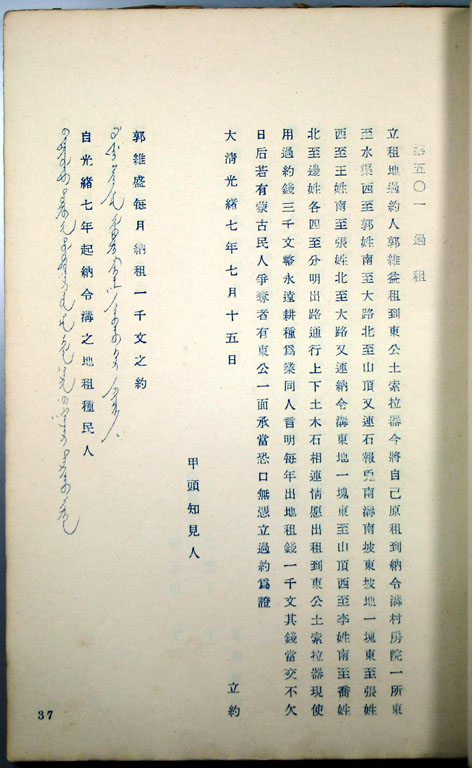 第五〇一 過租
立租地過約人郭維益租到東公土索拉器今將自己原租到納令溝村房院一所東
至水渠西至郭姓南至大路北至山頂又連石報兎南海南坡東坡地一塊東至張姓
西至王姓南至張姓北至大路又連納令溝東地一塊東至山頂西至李姓南至喬姓
北至邊姓各四至分明出路通行上下土木石相連情愿出租到東公土索拉器現使
用過約錢三千文整永遠耕種爲業同人言明每年出地租錢一千文其錢當交不欠
日后若有蒙古民人爭奪者有東公一面承當恐口無憑立過約爲證
大淸光緒七年七月十五日 立約
甲頭知見人
郭維盛每月納租一千文之約
自光緒七年起納令溝之地租種民人
37